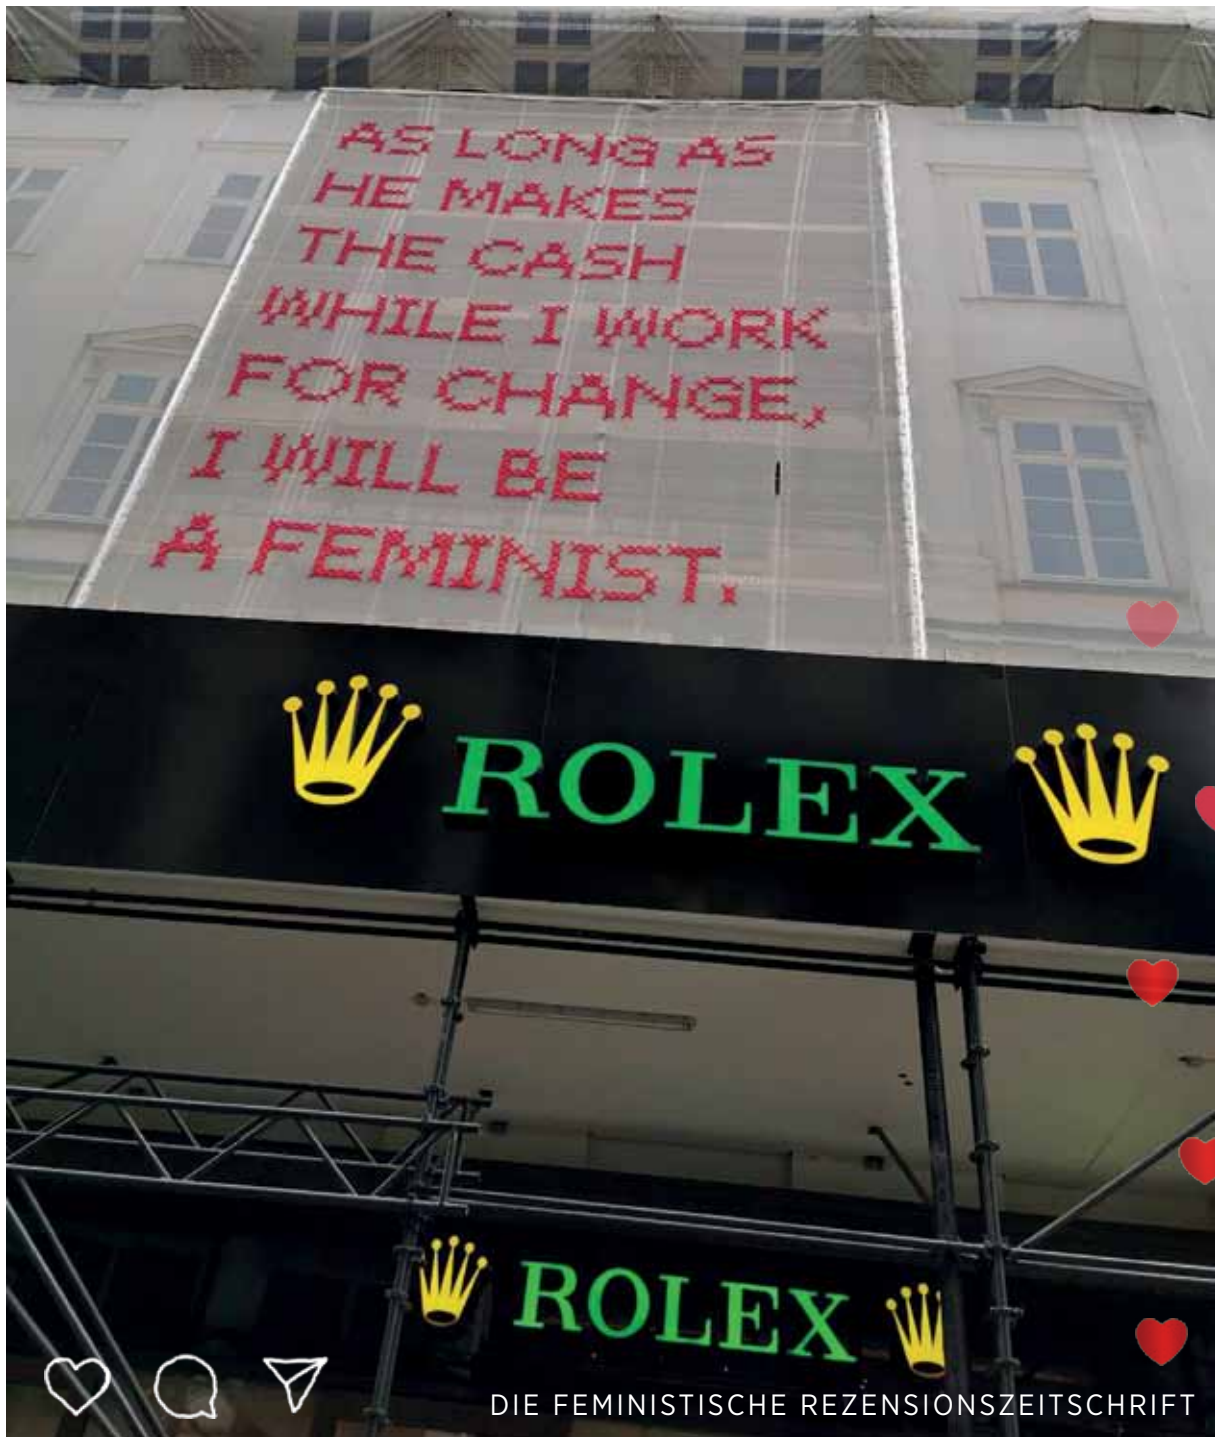 AS LONG AS
HE MAKES
THE CASH
WHILE I WORK
FOR CHANGE,
I WILL BE
A FEMINIST.
ROLEX
ROLEX
DIE FEMINISTISCHE REZENSIONSZEITSCHRIFT